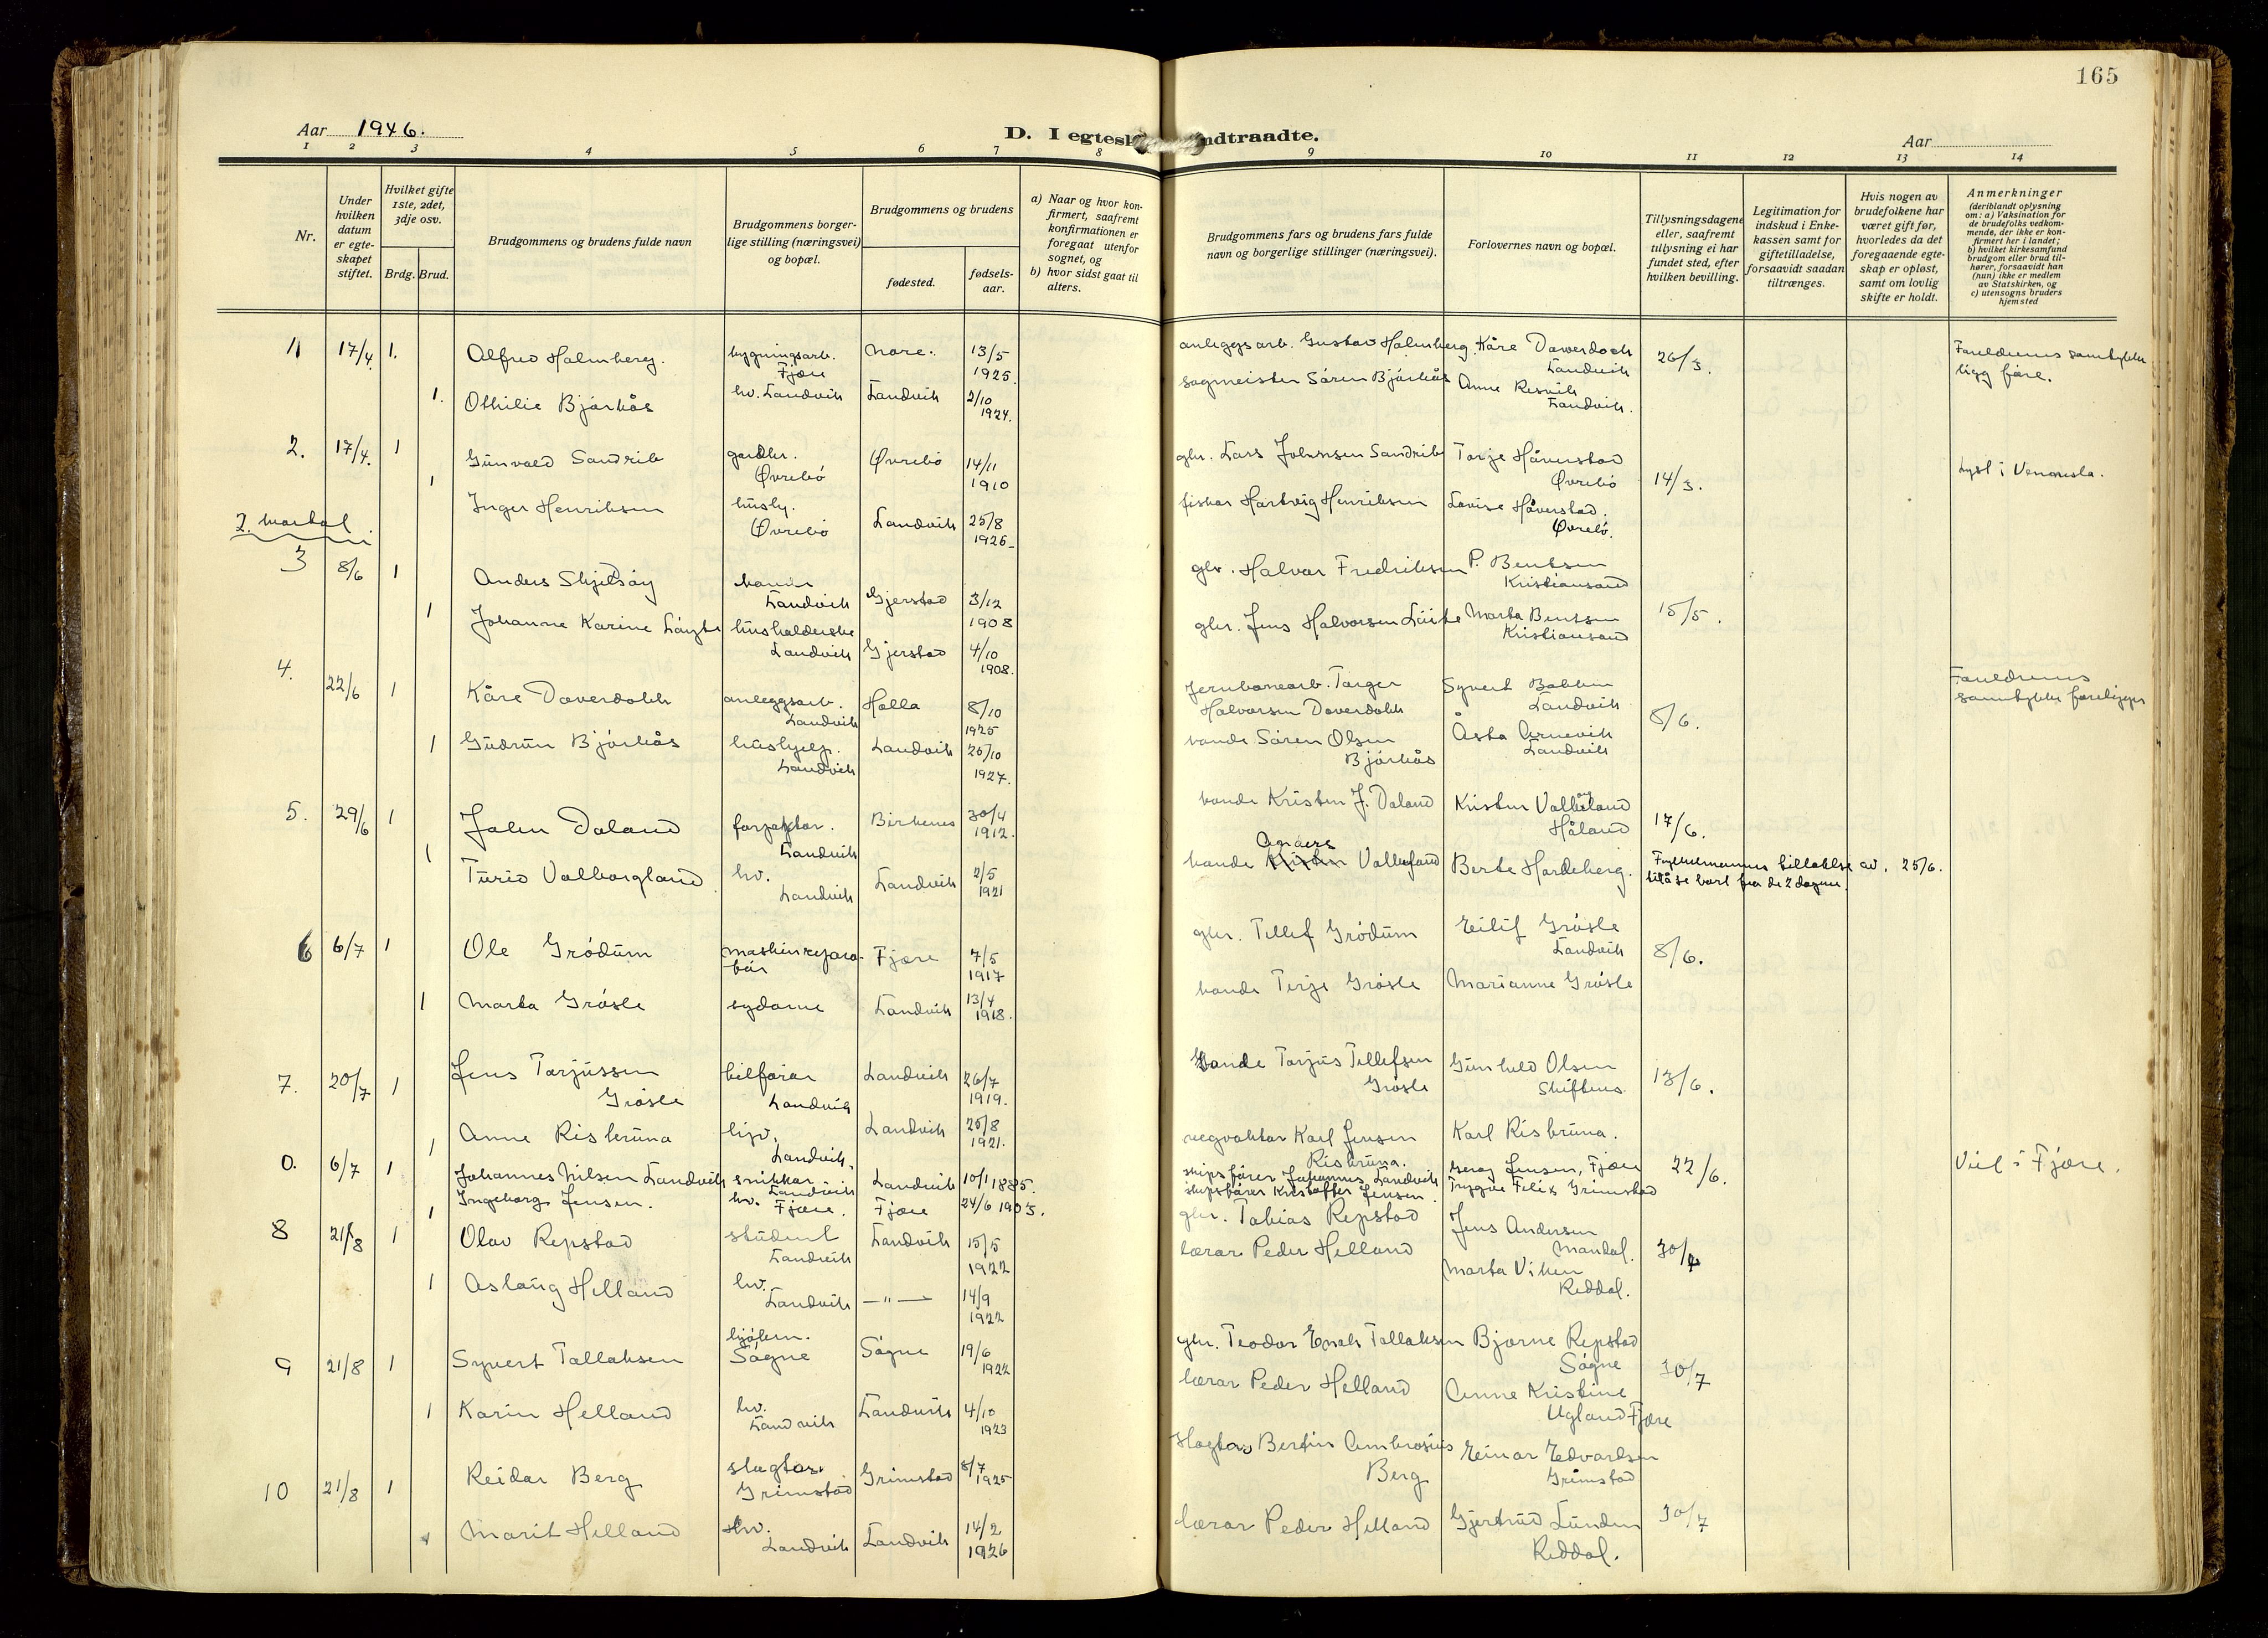 165
Aar 1946.
D. I egtesk
ndtraadte.
Aar
1 2 3 4 5 6 7 8 9 10 11 12 13 14
Nr.
Under hvilken datum er egteskapet stiftet.
Hvilket gifte 1ste, 2det, 3dje osv.
Brdg. Brud.
Brudgommens og brudens fulde navn
Brudgommens borgerlige stilling (næringsvei) og bopæl.
Brudgommens og brudens
fødested.
fødselsaar.
a) Naar og hvor konfirmert, saafremt konfirmationen er foregaat utenfor sognet, og
b) hvor sidst gaat til alters.
Brudgommens fars og brudens fars fulde navn og borgerlige stillinger (næringsvei).
Forlovernes navn og bopæl.
Tillysningsdagene eller, saafremt tillysning ei har fundet sted, efter hvilken bevilling.
Legitimation for indskud i Enkekassen samt for giftetilladelse, forsaavidt saadan tiltrænges.
Hvis nogen av brudefolkene har været gift før, hvorledes da det foregaaende egteskap er opløst, samt om lovlig skifte er holdt.
Anmerkninger
(deriblandt oplysning om: a) Vaksination for de brudefolks vedkommende, der ikke er konfirmert her i landet; b) hvilket kirkesamfund brudgom eller brud tilhører, forsaavidt han (hun) ikke er medlem av Statskirken, og c) utensogns bruders hjemsted
1 17/4. 1. Alfred Halmberg. bygningsarb. Fjære Nore. 13/5 1925. anleggsarb. Gustav Halmberg. Kåre Daverdock Landvik 26/3. Foreldrenes samtykke ligg føre.
1. Othilie Bjørkås hv. Landvik Landvik 2/10 1924. sagmeister Søren Bjørkås Anne Resvik Landvik.
2. 17/4. 1 Gunvald Sandrib gardbr. Øvrebø Øvrebø 14/11 1910 gbr. Lars Johnsen Sandrib Tarje Håverstad Øvrebø 14/3. Lyst i Vennesla.
1 Inger Henriksen hushj. Øvrebø Landvik 25/8 1926 fisker Hartvig Henriksen Lovise Håverstad. Øvrebø.
2. kvartal.
3 8/6 1 Anders Skjelsøy bonde Landvik Gjerstad 3/12 1908 gbr. Halvor Fredriksen P. Bentsen Kristiansand
1 Johanne Karine Løyte husholderske Landvik Gjerstad 4/10 1908. gbr. Jens Halvorsen Løite Marta Bentsen Kristiansand 15/5.
4. 22/6 1 Kåre Daverdokk anleggsarb. Landvik Holla 8/10 1925 Jernbanearb. Targer Halvorsen Daverdokk Syvert Bakken Landvik 8/6. Foreldrenes samtykke foreligger
1 Gudrun Bjørkås hushjelp. Landvik Landvik 25/10 1927. bonde Søren Olsen Bjørkås Åsta Arnevik Landvik
5. 29/6 1 John Daland forpaktar. Landvik Birkenes 30/4 1912. bonde Kristen J. Daland Kristen Valborgland Håland 17/6.
1 Turid Valborgland hv. Landvik Landvik 2/5 1921 bonde Anders Valborgland Berte Hardeberg. Fylkesmannens tillatelse av. 25/6. til å se bort fra de 2 dagene.
6 6/7 1 Ole Grødum maskinreparatør Fjære 7/5 1917 gbr. Tellef Grødum Eilif Grøsle Landvik 8/6.
1 Marta Grøsle sydame Landvik 13/4 1918. bonde Terje Grøsle Marianne Grøsle
7. 20/7 1 Jens Tarjussen Grøsle bilførar Landvik Landvik 26/7 1919. Bonde Tarjus Tellefsen Grøsle Gunhild Olsen Skiftenes 13/6.
1 Anne Risbruna hjv. Landvik. Landvik 25/8 1921. vegvaktar Karl Jensen Risbruna. Karl Risbruna.
0. 6/7 1 Johannes Nilsen Landvik snikkar Landvik Landvik 10/1 1885. skipsfører Johannes Landvik Georg Jensen, Fjære 22/6. Viel i Fjære.
1 Ingeborg Jensen. hv. Fjære. Fjære 24/6 1905. skipsfører Kristoffer Jensen. Trygve Felix Grimstad
8 21/8 1 Olav Repstad student Landvik Landvik 15/5 1922 gbr. Tobias Repstad Jens Andersen Mandal. 30/7
1 Aslaug Helland hv. Landvik —"— 14/9 1922 lærar Peder Helland Marta Viken Reddal.
9 21/8 1 Syvert Tallaksen kjøbm. Søgne Søgne 19/6 1922 gbr. Teodor Enok Tallaksen Bjarne Repstad Søgne 30/7
1 Karin Helland hv. Landvik Landvik 4/10 1923 lærar Peder Helland Anne Kristine Ugland Fjære
10 21/8 1 Reidar Berg slagtar Grimstad Grimstad 8/7 1925 Slagtar Bertin Ambrosius Berg Einar Edvardsen Grimstad
1 Marit Helland hv. Landvik Landvik 14/2 1926 lærar Peder Helland Gjertrud Lunden Reddal. 30/7